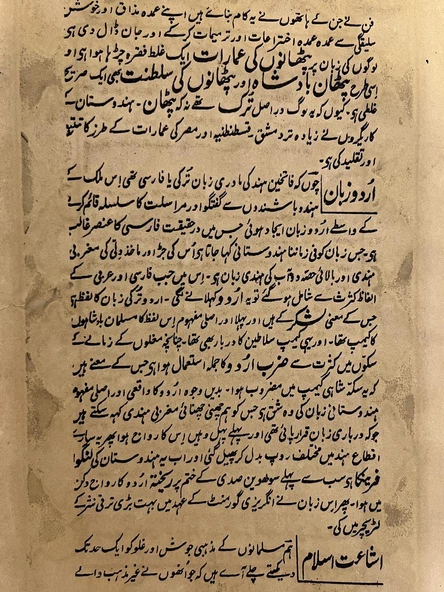 فن نے جن کے ہاتھوں نے یہ کام بنائے ہیں اپنے عمدہ مذاق اور خوش
سلیقگی سے عمدہ عمدہ اختراعات اور ترمیمات کر کے اور جان ڈال دی ہی
لوگوں کی زبان پر پٹھانوں کی عمارات ایک غلط فقرہ چڑہا ہوا ہی او
اسی طرح پٹھان بادشاہ اور پٹھانوں کی سلطنت بھی ایک صریح
غلطی ہی۔ کیوں کہ یہ لوگ در اصل ترک تھے نہ کہ پٹھان۔ ہندوستان کے
کاریگروں نے زیادہ تر دمشق، قسطنطنیہ اور مصر کی عمارات کے طرز کا تتبع
اور تقلید کی ہی۔
اُردو زبان
چوں کہ فاتحین ہند کی مادری زبان ترکی یا فارسی تھی اِس ملک کے
ہندو باشندوں سے گفتگو اور مراسلت کا سلسلہ قائم کرنے
کے واسطے اُردو زبان ایجاد ہوئی جس میں درحقیقت فارسی کا عنصر غالب
ہو۔ جس زبان کو فی زماننا ہندوستانی کہا جاتا ہو اُس کی جڑ اور ماخذ دلی کی مغربی
ہندی اور بالائی حصّہ دوآب کی ہندی زبان ہو۔ اِس میں جب فارسی اور عربی کے
الفاظ کثرت سے شامل ہو گئے تو یہ اُردو کہلانے لگی۔ اردو ترکی زبان کا لفظ ہی
جس کے معنی لشکر کے ہیں اور پہلا اور اصلی مفہوم اِس لفظ کا مسلمان بادشاہوں
کا کیمپ تھا۔ اور یہی کیمپ سلاطین کا دربار بھی تھا۔ چنانچہ مغلوں کے زمانے کے
سکّوں میں کثرت سے ضرب اُردو کا جملہ استعمال ہوا ہی جس کے معنے ہیں
کہ یہ سکہ شاہی کیمپ میں مضروب ہوا۔ بدیں وجوہ اُردو کا واقعی اور اصلی مفہوم
ہندوستانی زبان کی وہ شق ہی جس کو ہم چھنی چھنائی مغربی ہندی کہہ سکتے ہیں
جو کہ درباری زبان قرار پائی تھی اور پہلے پہل وہیں اِس کا رواج ہوا پھر یہ سارے
اقطاع ہند میں مختلف روپ بدل کر پھیل گئی اور اب یہ ہندوستان کی لنگوا
فرینکا ہی سب سے پہلے سولھویں صدی کے ختم پر ریختہ اُردو کا رواج دکن
میں ہوا۔ پھر اِس زبان نے انگریزی گورمنٹ کے عہد میں بہت بڑی ترقی نثر کے
لٹریچر میں کی۔
اشاعت اسلام
ہم مسلمانوں کے مذہبی جوش اور غلو کو ایک حد تک
دیکھتے چلے آے ہیں کہ جو انھوں نے غیر مذہب والے